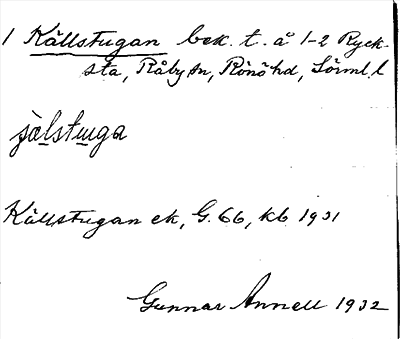 1 Källstugan bek. t. å 1-2 Ryck-
sta, Råby sn, Rönö hd, Sörml. l
jälstuga
Källstugan ek, G. 66, kb 1931
Gunnar Annell 1932